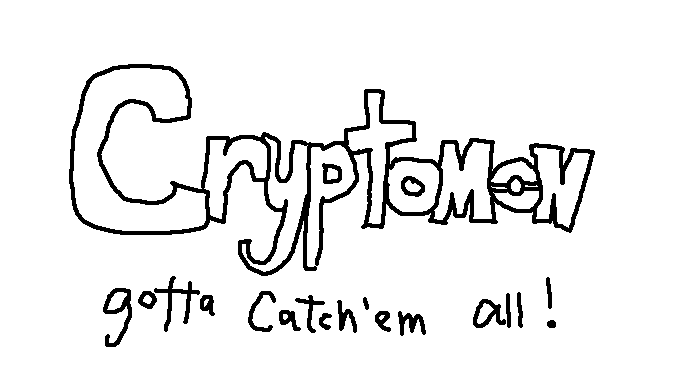 Cryptomon
gotta Catch'em all!